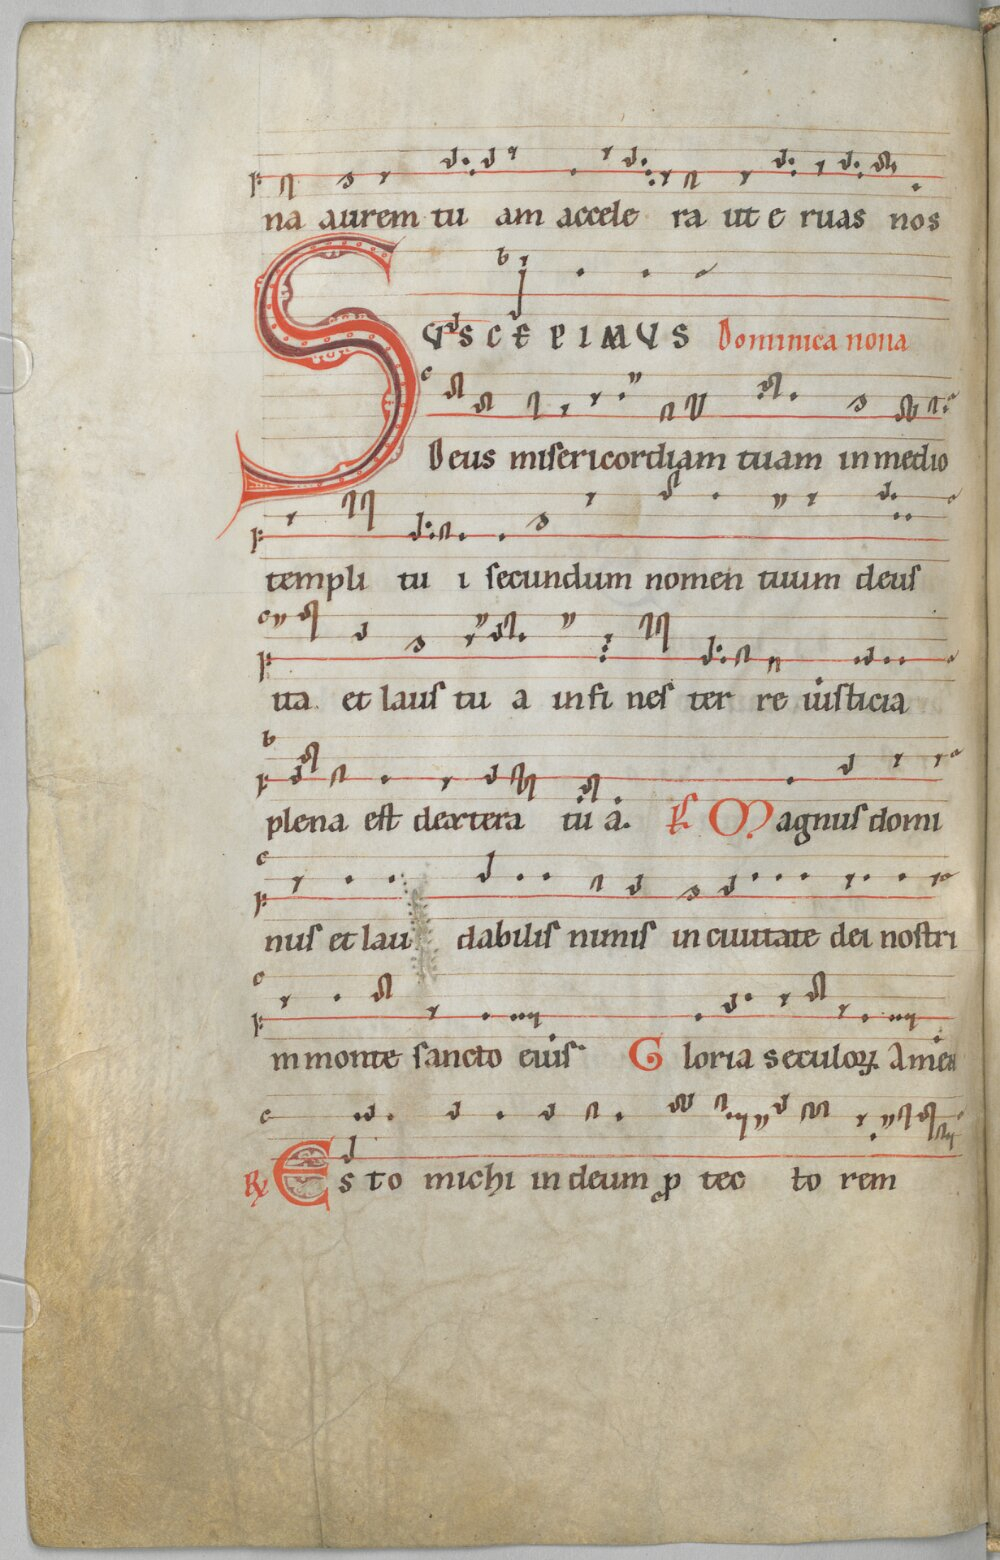 na aurem tu am accele ra ut e ruas nos
SUSCEPIMUS Dominica nona
Deus misericordiam tuam in medio
templi tu i secundum nomen tuum deus
ita et laus tu a in fi nes ter re iusticia
plena est dextera tu a. Ps Magnus domi
nus et lau dabilis nimis in civitate dei nostri
in monte sancto eius Gloria seculoꝝ. Amen
R Esto michi in deum ꝓ tec to rem